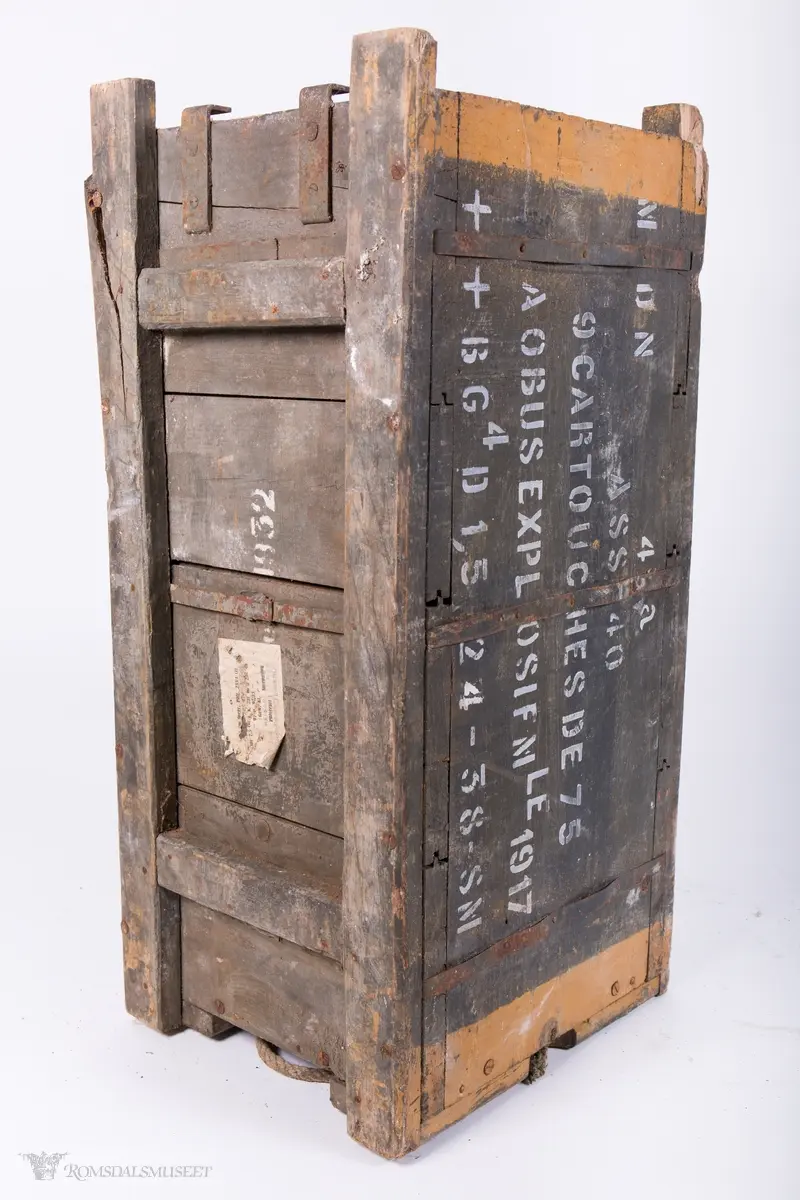 M DN 4 2
ASS 40
9 CARTOUCHES DE 75
A OBUS EXPLOSIF N LE 1917
+ + BG4D 1,5 24-38-SM
1932
ROMSDALSMUSEET